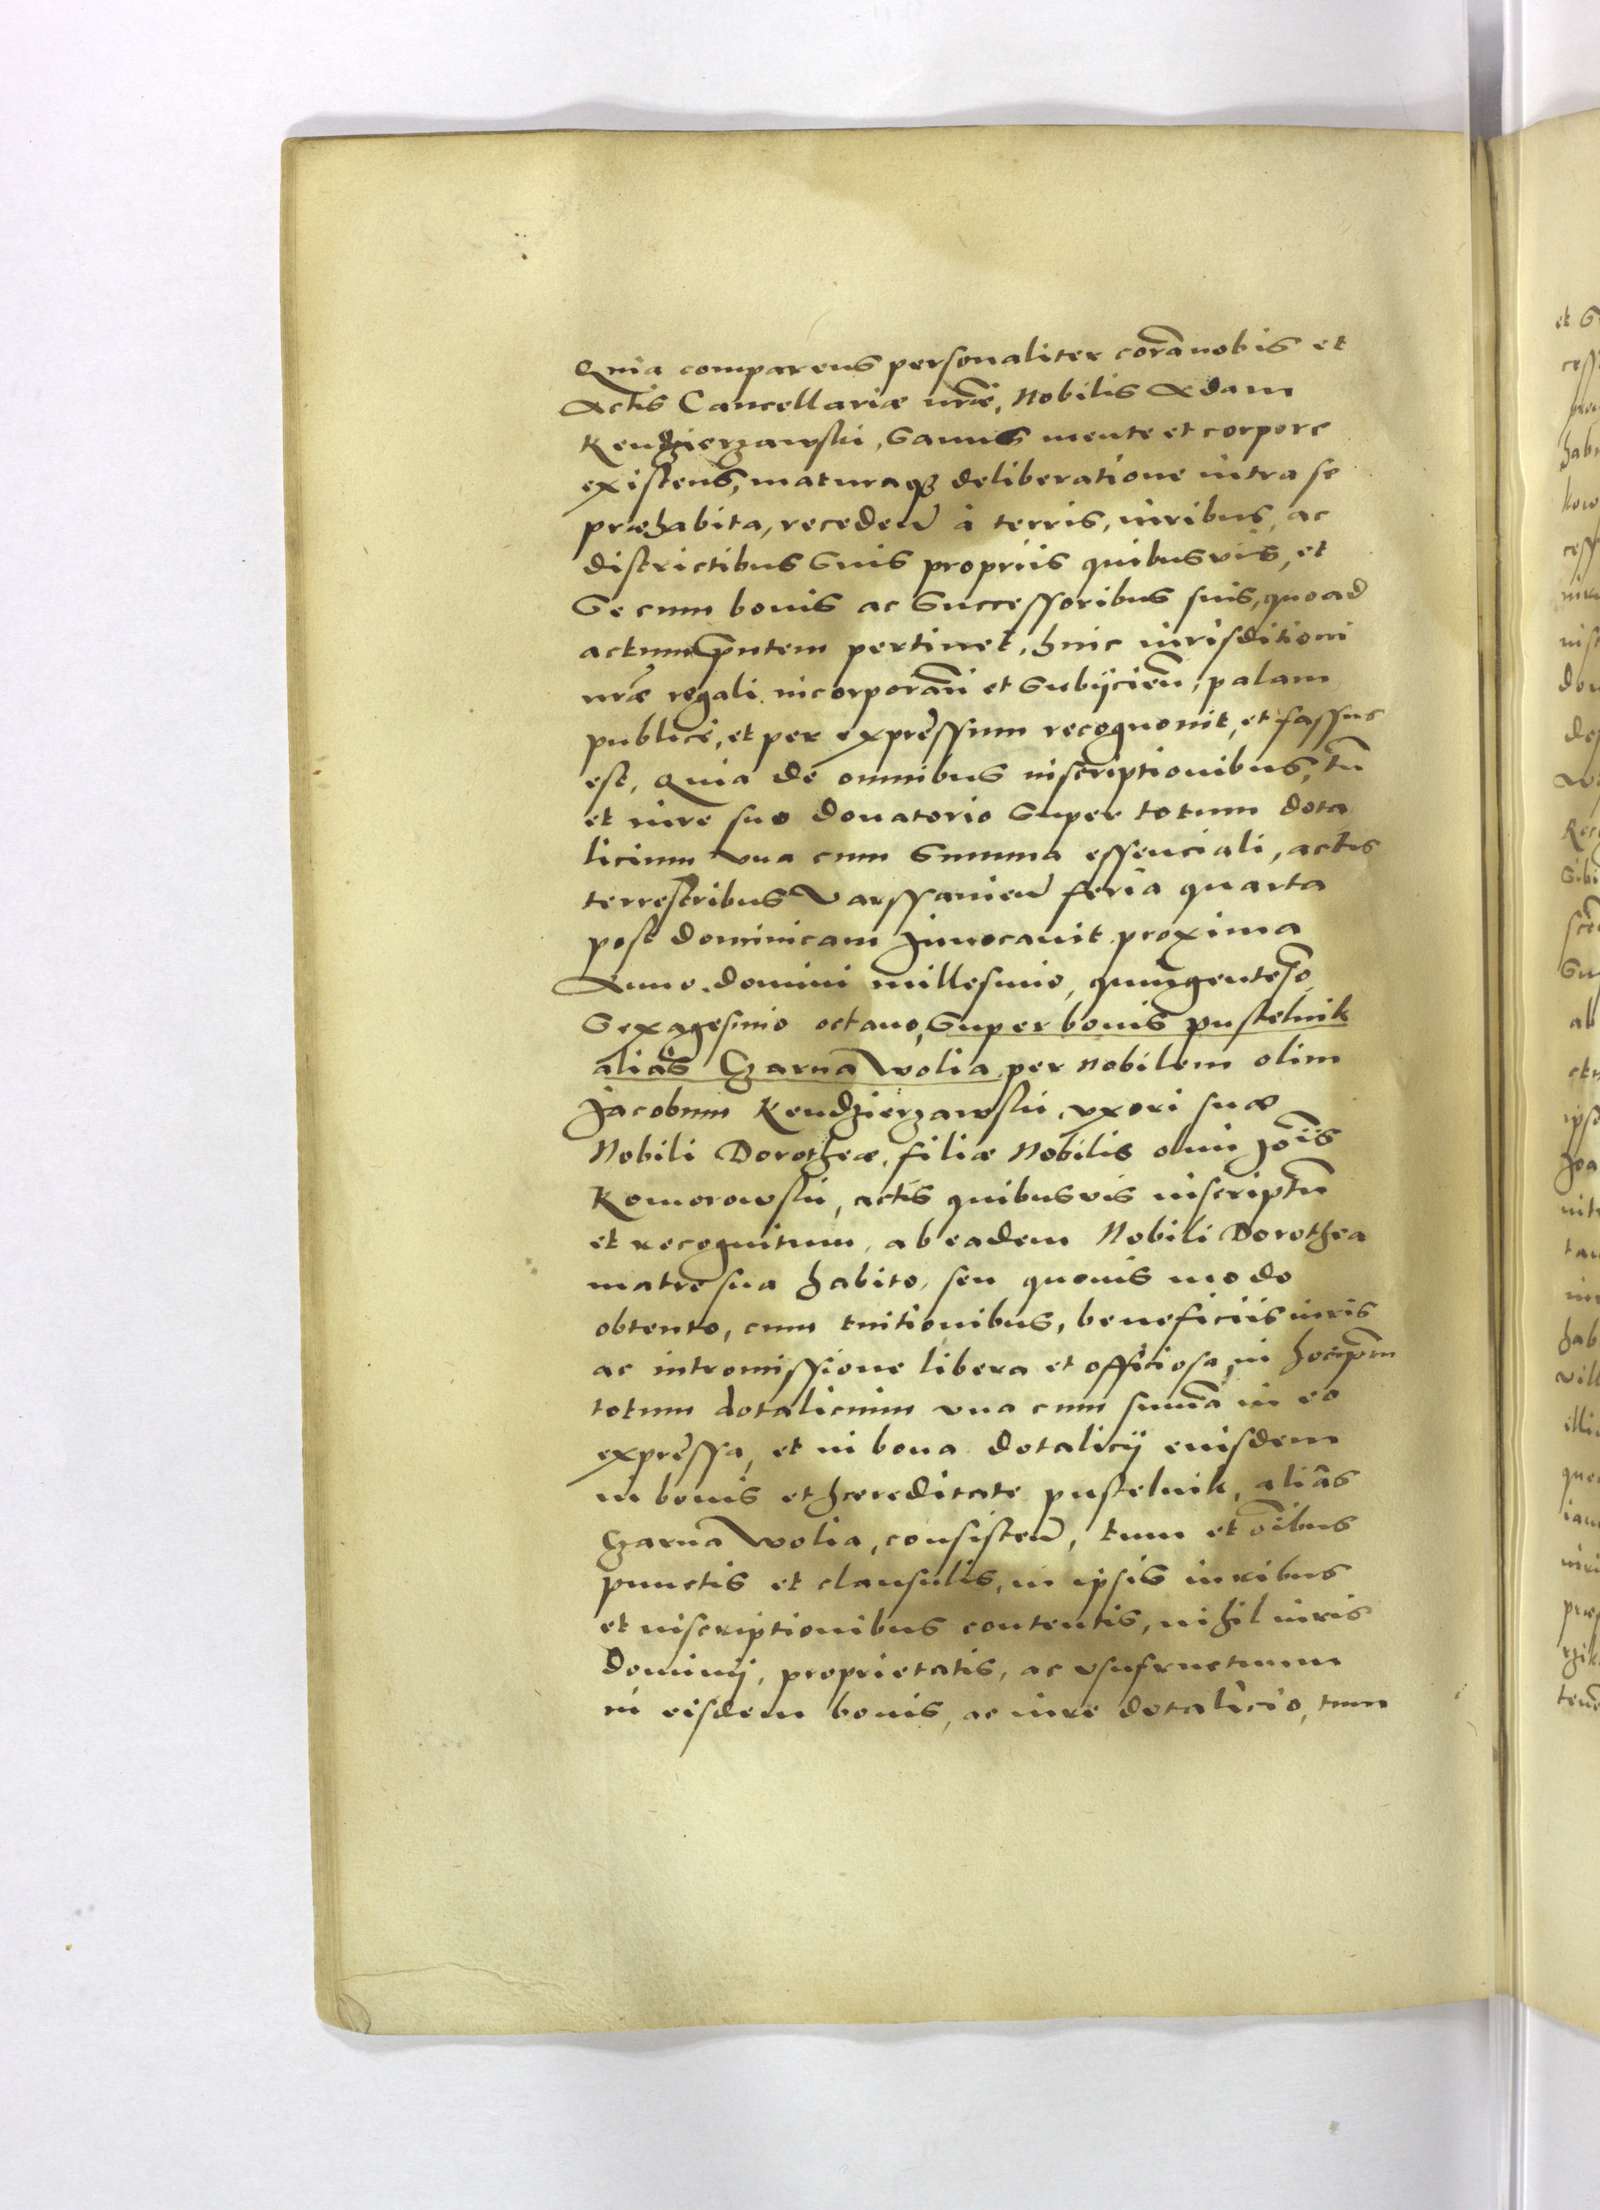 Quia comparens personaliter corā nobis et
Actis Cancellariæ nr̃æ, Nobilis Adam
Kendzierzawski, sanus mente et corpore
existens, maturaq3 deliberatione intra se
præhabita, receden̄ à terris, iuribus, ac
districtibus suis propriis quibusvis, et
se cum bonis ac successoribus suis, quoad
actum pñtem pertinet, huic iurisditioni
nr̃æ regali incorporañ et subijcień, palam
publicè, et per expressum recognouit, et fassus
est, Quia de omnibus inscriptionibus, tū
et iure suo donatorio super totum dota
licium vna cum summa essenciali, actis
terrestribus Varssauień feria quarta
post dominicam Jnuocauit proxima
Anno domini millesimo, quingenteſo
sexagesimo octauo, super bonis pustelnik
aliàs Czarna wolia per nobilem olim
Jacobum Kendzierzawski, vxori suæ
Nobili Dorotheæ, filiæ Nobilis olim Joīs
Komorowski, actis quibusvis inscriptū
et recognitum, ab eadem Nobili Dorothea
matre sua habito, seu quouis modo
obtento, cum tuitionibus, beneficiis iuris
ac intromissione libera et officiosa, in hocip̄m
totum dotalicium vna cum sum̄a in eo
expressa, et in bona dotalicij eiusdem
in bonis et hæreditate pustelnik, aliàs
Czarna wolia, consisteñ, tum et oībus
punctis et clausulis, in ipsis iuribus
et inscriptionibus contentis, nihil iuris
dominij, proprietatis, ac vsufructuum
in eisdem bonis, ac iure dotalicio, tum